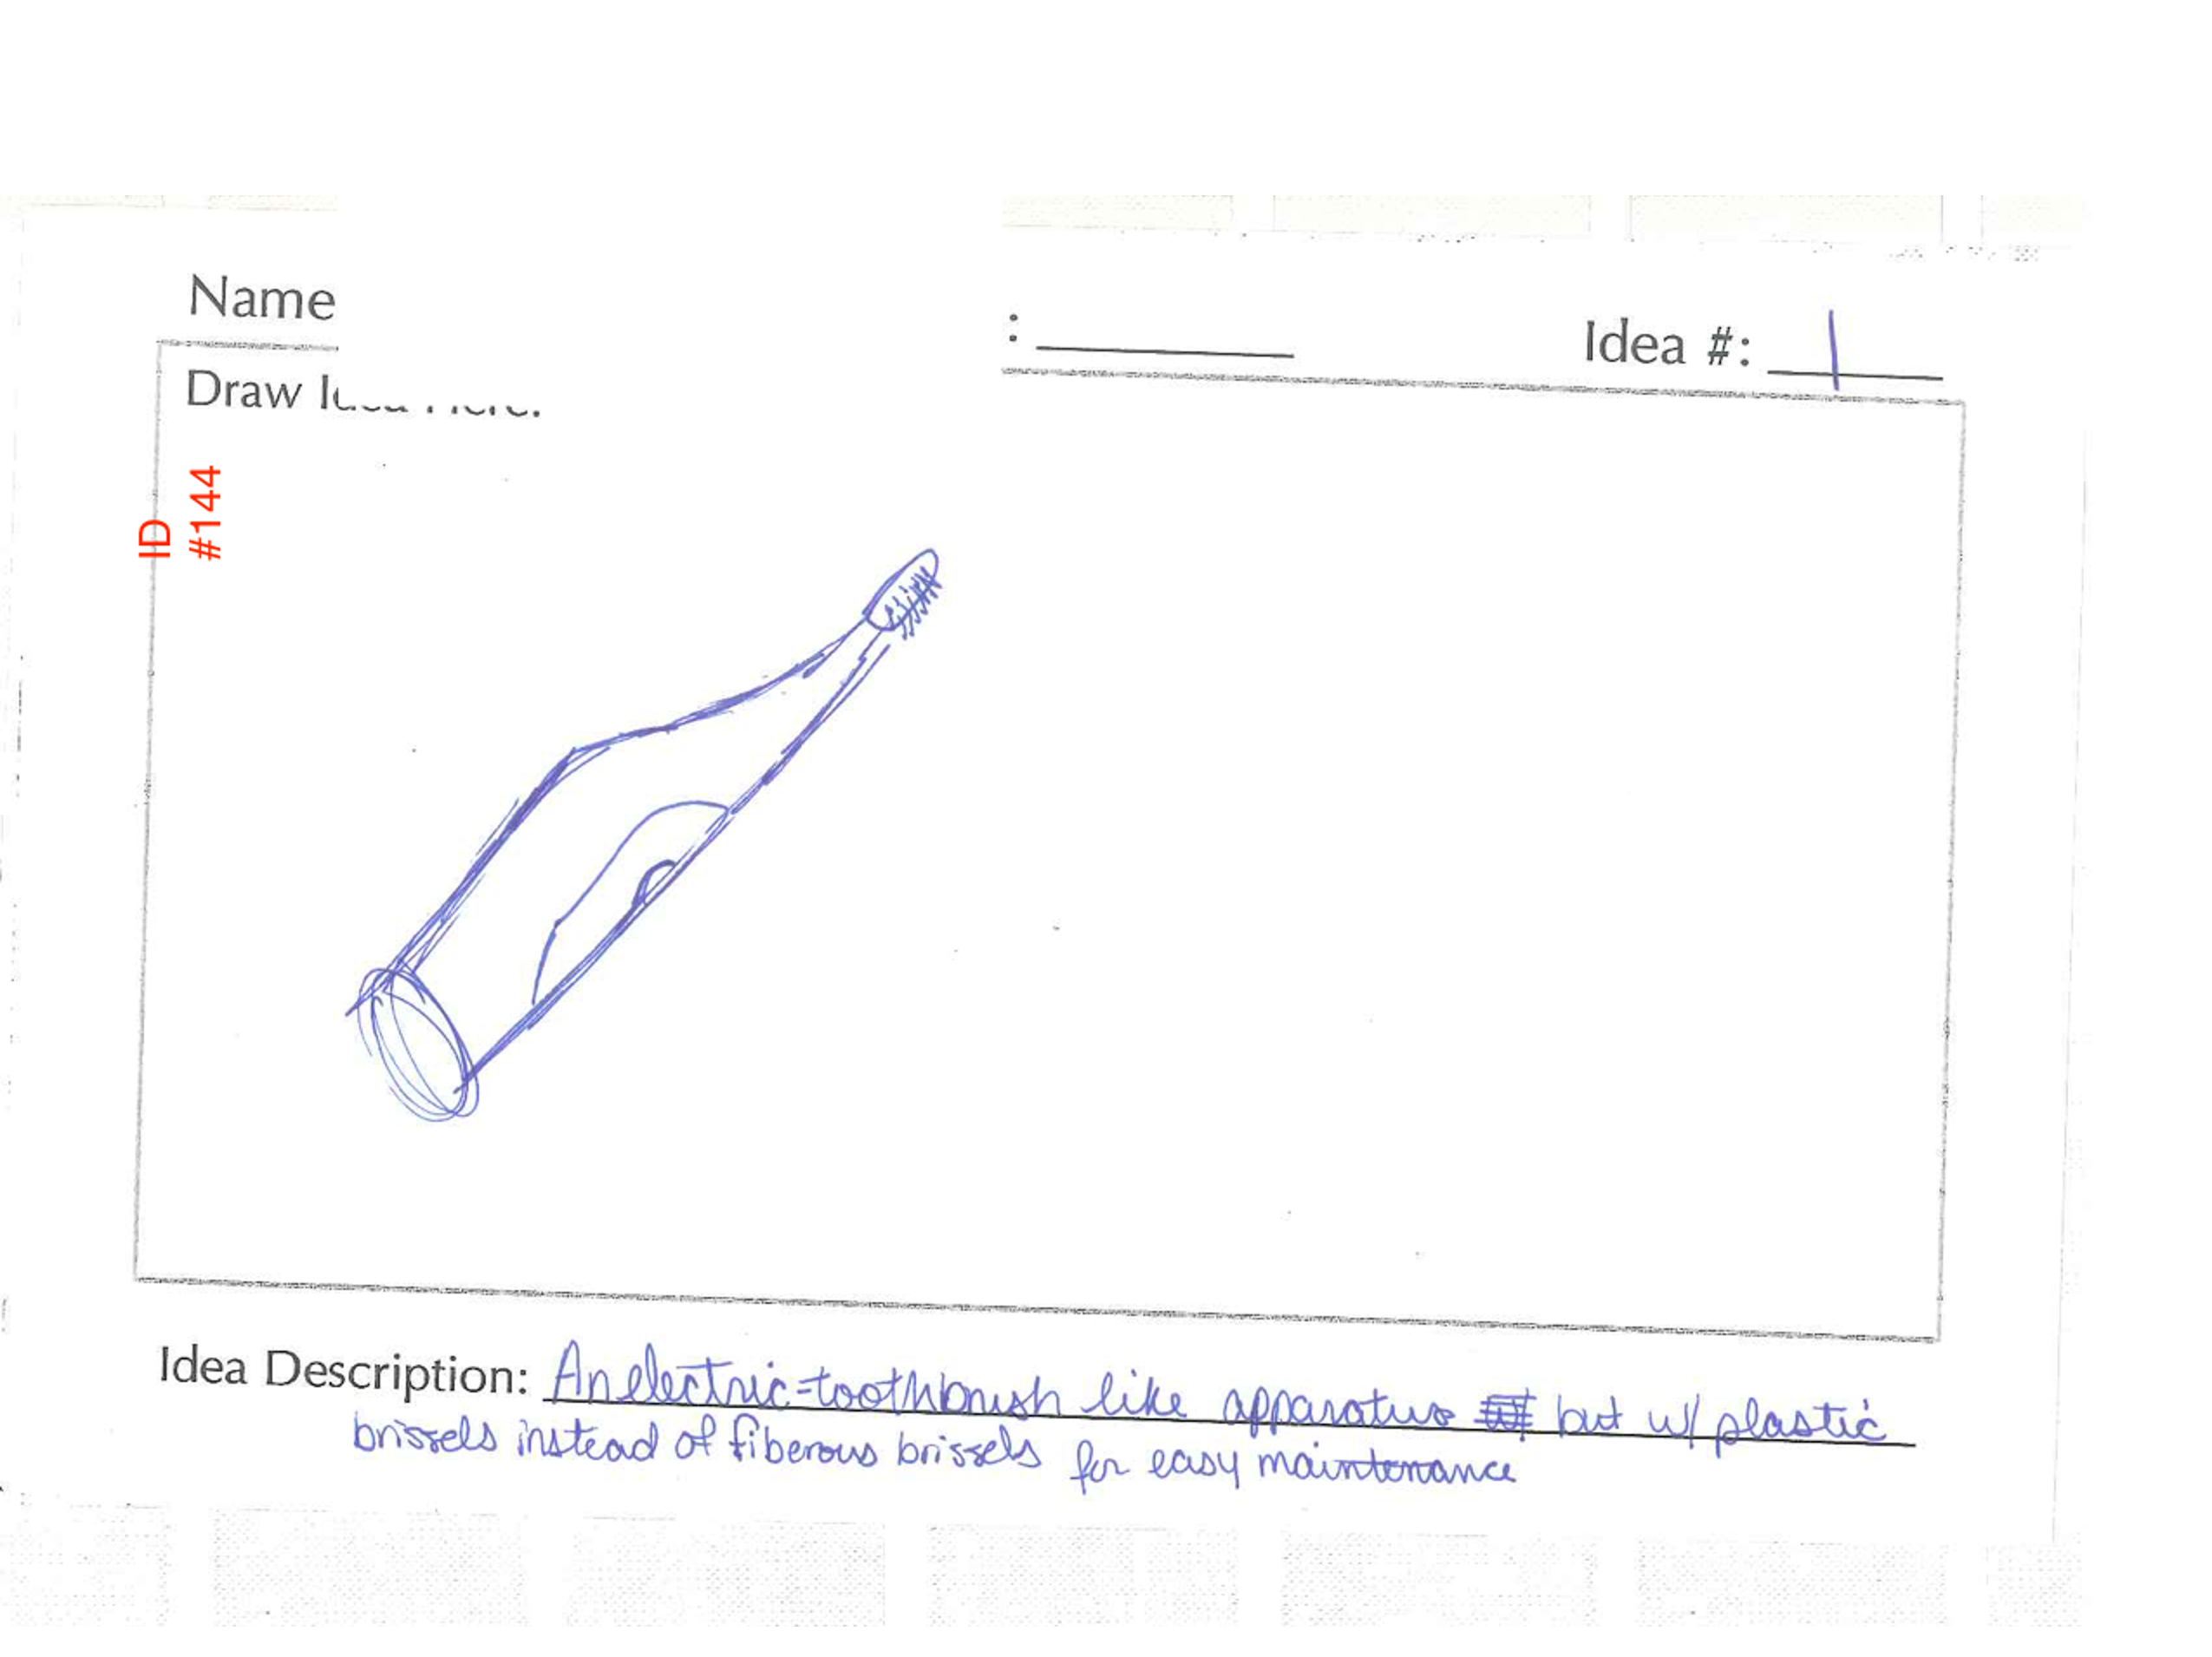 Name
: Idea #: 1
Draw
ID
#144
Idea Description: An electric-toothbrush like apparatus but w/ plastic
brissels instead of fiberous brissels for easy maintenance